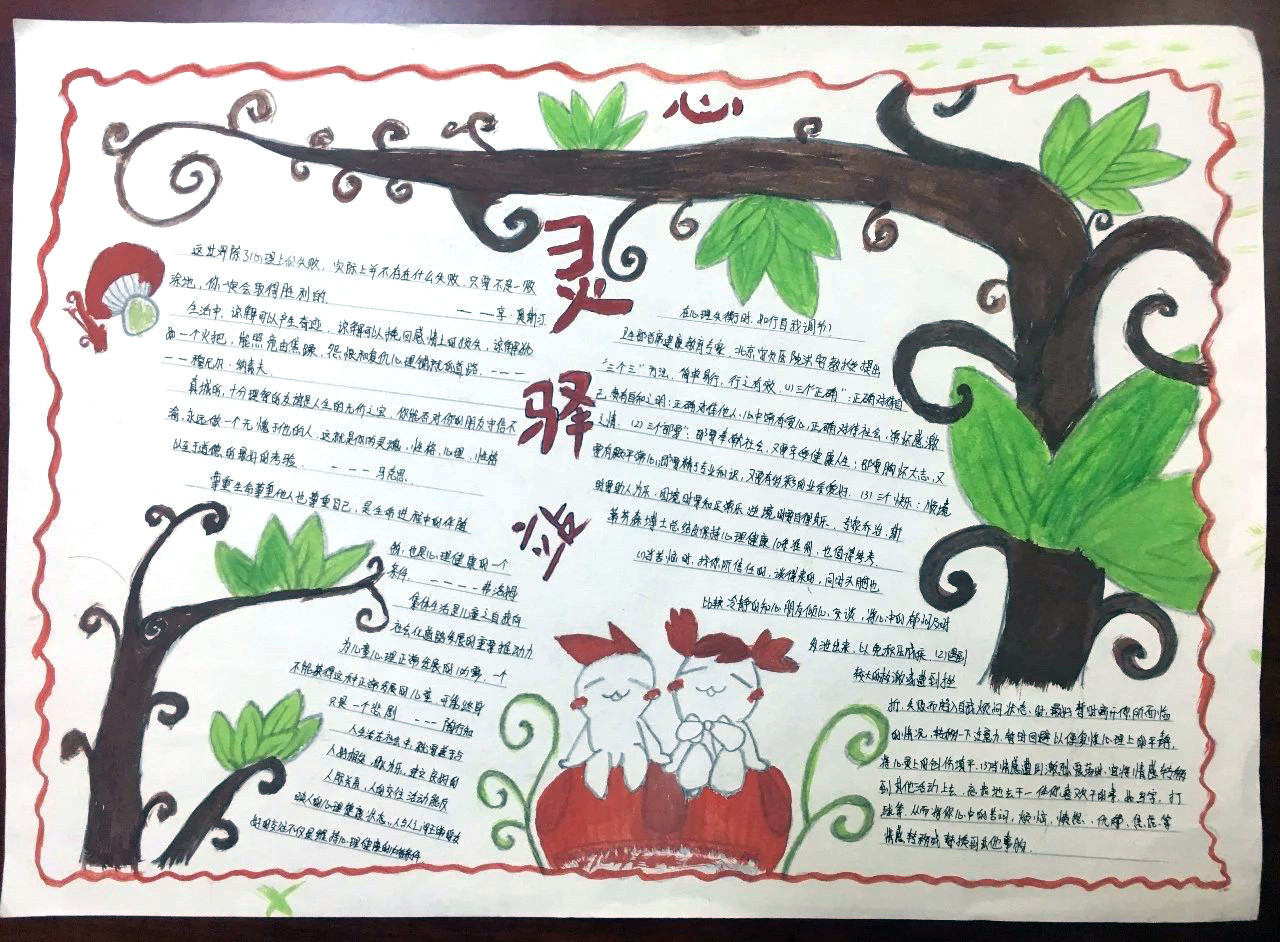 心
灵
驿
站
这世界除了心理上的失败，实际上并不存在什么失败，只要不是一败
涂地，你一定会取得胜利的
——亨·奥斯汀
生活中，谅解可以产生奇迹，谅解可以挽回感情上的损失，谅解犹
如一个火把，能照亮由焦躁、怨恨和复仇心理铺就的道路。———
——穆尼尔·纳素夫
真诚的、十分理智的友谊是人生的无价之宝。你能否对你的朋友守信不
渝，永远做一个无愧于他的人，这就是你的灵魂、性格、心理、性格
以至于道德的最好的考验。———马克思
尊重生命尊重他人也尊重自己，是生命进程中的伴随
物，也是心理健康的一个
条件。————弗洛姆
集体生活是儿童之自我向
社会化道路发展的重要推动力
为儿童心理正常发展的必需，一个
不能获得这种正常发展的儿童，可能终身
只是一个悲剧———陶行知
人生活在社会中，就要善于与
人的朋友，助人为乐，建立良好的
人际关系，人的交往活动能反
映人的心理健康状态，人与人之间正常的友
好的交往不仅是维持心理健康的必备条件
在心理失衡时，如何自我调节？
卫生部首席健康教育专家，北京安贞医院洪昭光教授提出
“三个三”方法，简单易行，行之有效。(1)三个“正确”：正确对待自
己，要有自知之明；正确对待他人，心中常有爱心，正确对待社会，常怀感激
之情。(2)三个“既要”：既要奉献社会，又要享受健康人生；既要胸怀大志，又
要有颗平常心，既要精于专业知识，又要有多彩的业余爱好。(3)三个快乐：顺境
时要助人为乐，困境时要知足常乐，逆境时要自得其乐。专家乔治·斯
蒂芬森博士总结出保持心理健康10条准则，也值得参考。
(1)当苦恼时，找你所信任的，谈得来的，同时头脑也
比较冷静的知心朋友倾心交谈，将心中的郁闷及时
发泄出来，以免积压成疾。(2)遇到
较大的刺激或遭到挫
折、失败而陷入自我烦闷状态时，最好暂时离开你所面临
的情况，转移一下注意力，暂时回避以便恢复心理上的平静，
将心灵上的创伤填平。(3)当情感遭到激烈震荡时，宜将情感转移
到其他活动上去，忘我地去干一件你喜欢干的事，如写字、打
球等，从而将你心中的苦闷、烦恼、愤怒、忧愁、焦虑等
情感转移或替换到其他事物。